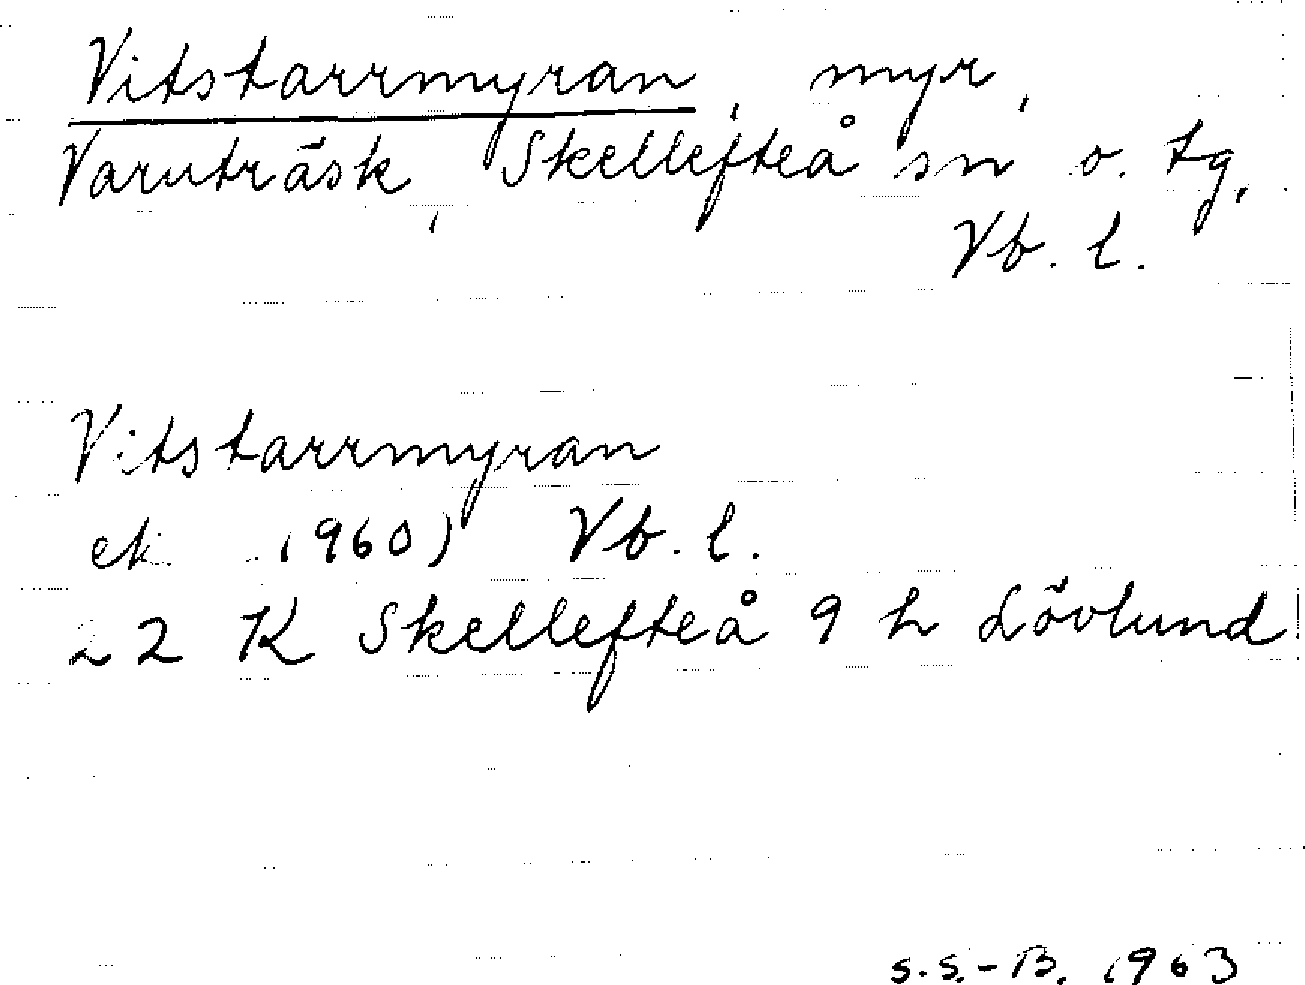 Vitstarrmyran, myr,
Varuträsk, Skellefteå sn o. tg,
Vb. l.
Vitstarrmyran
ek 1960) Vb. l.
22 K Skellefteå 9 h Lövlund
S.S.-B. 1963